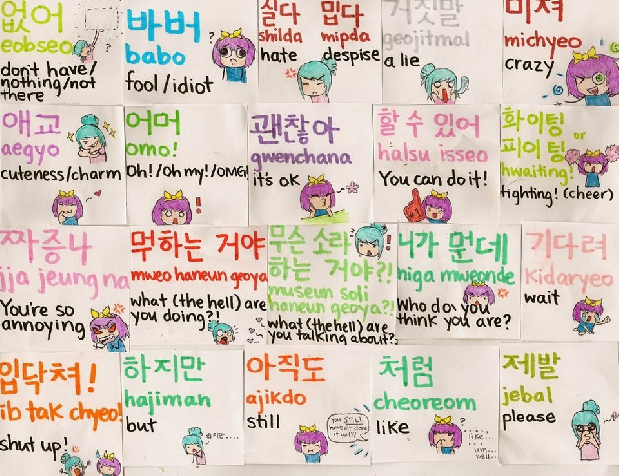 없어
eobseo
don't have/
nothing/not
there
?
바버
babo
fool/idiot
?
싫다 밉다
shilda mipda
hate despise
거짓말
geojitmal
a lie
미쳐
michyeo
crazy
애교
aegyo
cuteness/charm
어머
omo!
Oh!/Oh my!/OMG!
!
괜찮아
gwenchana
it's ok
할 수 있어
halsu isseo
You can do it!
화이팅 or
피이팅
hwaiting!
fighting! (cheer)
짜증나
jja jeung na
You're so
annoying
뭐하는 거야
mweo haneun geoya
what (the hell) are
you doing?!
무슨 소라
하는 거야?!
museun soli
haneun geoya?!
what (the hell) are
you talking about?!
니가 뭔데
niga mweonde
Who do you
think you are?
기다려
kidaryeo
wait
입닥쳐!
ib tak chyeo!
shut up!
하지만
hajiman
but
하지만....
아직도
ajikdo
still
you STILL
haven't done
it yet?!
처럼
cheoreom
like
?
like...
um...
well...
제발
jebal
please